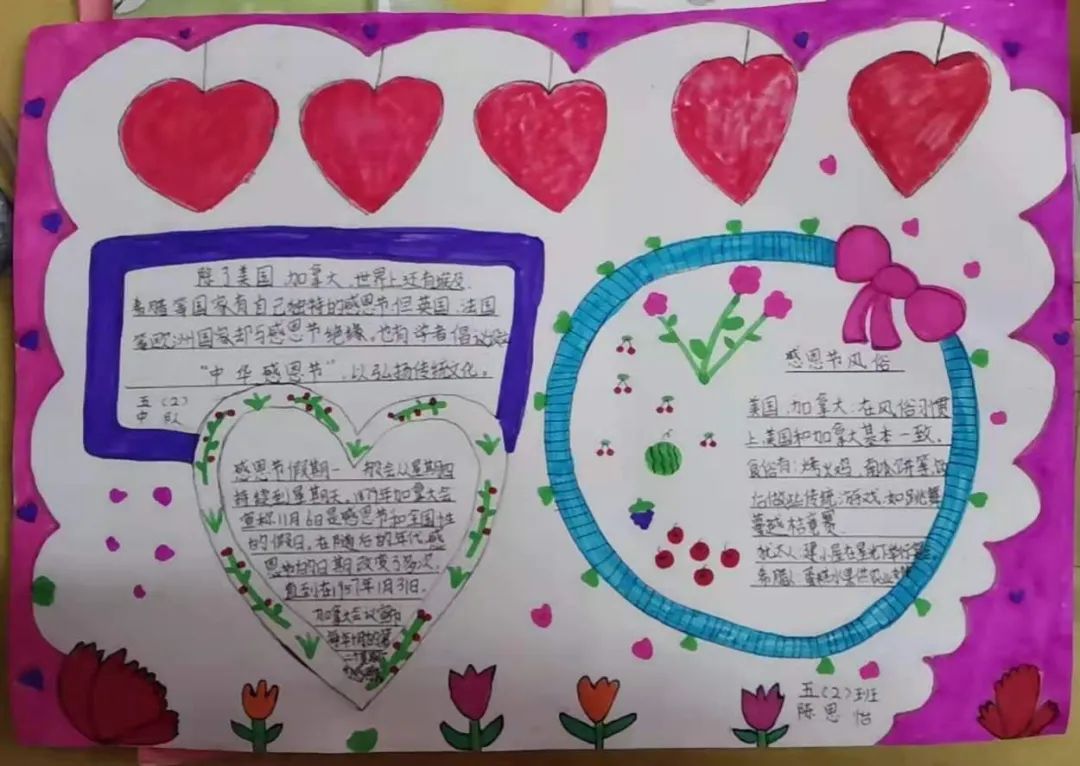 除了美国、加拿大、世界上还有埃及、
希腊等国家有自己独特的感恩节,但英国、法国
等欧洲国家却与感恩节绝缘。也有学者倡议设立
“中华感恩节”,以弘扬传统文化。
五(2)
中队
感恩节假期一般会从星期四
持续到星期天。1879年加拿大会
宣称11月6日是感恩节和全国性
的假日。在随后的年代,感
恩节的日期改变了多次,
直到在1957年1月31日,
加拿大会议宣布
每年十月的第
二个星期一
为感恩节
感恩节风俗
美国、加拿大:在风俗习惯
上美国和加拿大基本一致。
食俗有:烤火鸡、南瓜饼等,也
做些传统游戏,如跳舞
蔓越桔竞赛
犹太人:建小屋在星光下举行
希腊人:蛋糕水果供
五(2)班
陈思怡